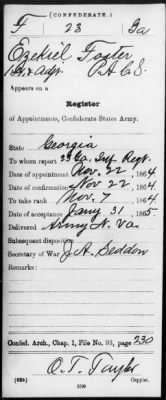 (CONFEDERATE.)
F 23 Ga
Ezekiel Foster
1st Lt & Adjt. P.A.C.S.
Appears on a
Register
of Appointments, Confederate States Army.
State Georgia
To whom report 23 Ga. Inf. Regt.
Date of appointment Nov. 22, 1864.
Date of confirmation Nov 22, 1864
To take rank Nov. 7, 1864
Date of acceptance Jany 31, 1865.
Delivered Army N. Va.
Subsequent disposition
Secretary of War J. A. Seddon
Remarks:
Confed. Arch., Chap. 1, File No. 93, page 230
O. T. Taylor
(635) Copyist.